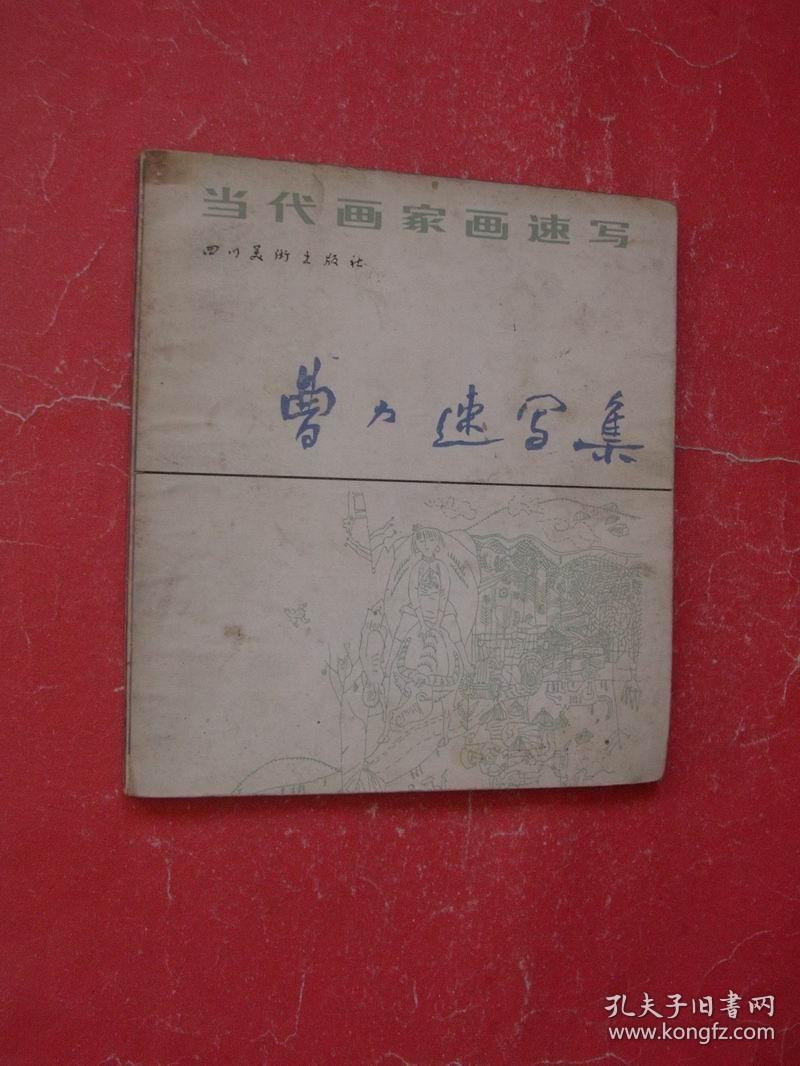 当代画家画速写
四川美术出版社
曹力速写集
孔夫子旧书网
www.kongfz.com